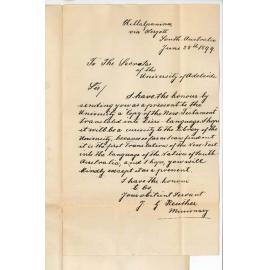 Killalpaninna
via Hergott
South Australia
June 28th 1899
To The Secretar
of the
University of Adelaide
Sir/
I have the honour by
sending you as a present to the
University a Copy of the New Testament
translated into Dieri-language. I hope
it will be a curiosity to the Library of the
University, because as far as I can find out
it is the first Translation of the New Test
into the language of the Natives of South
Australia, and I hope, you will
kindly except it as a present.
I have the honour
to be
Your obedient Servant
J G Reuther
Missionary